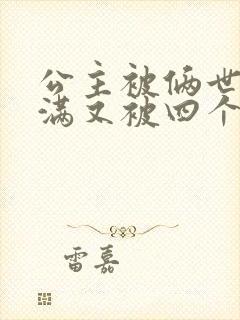 公主被俩世
满又被四个
雷嘉